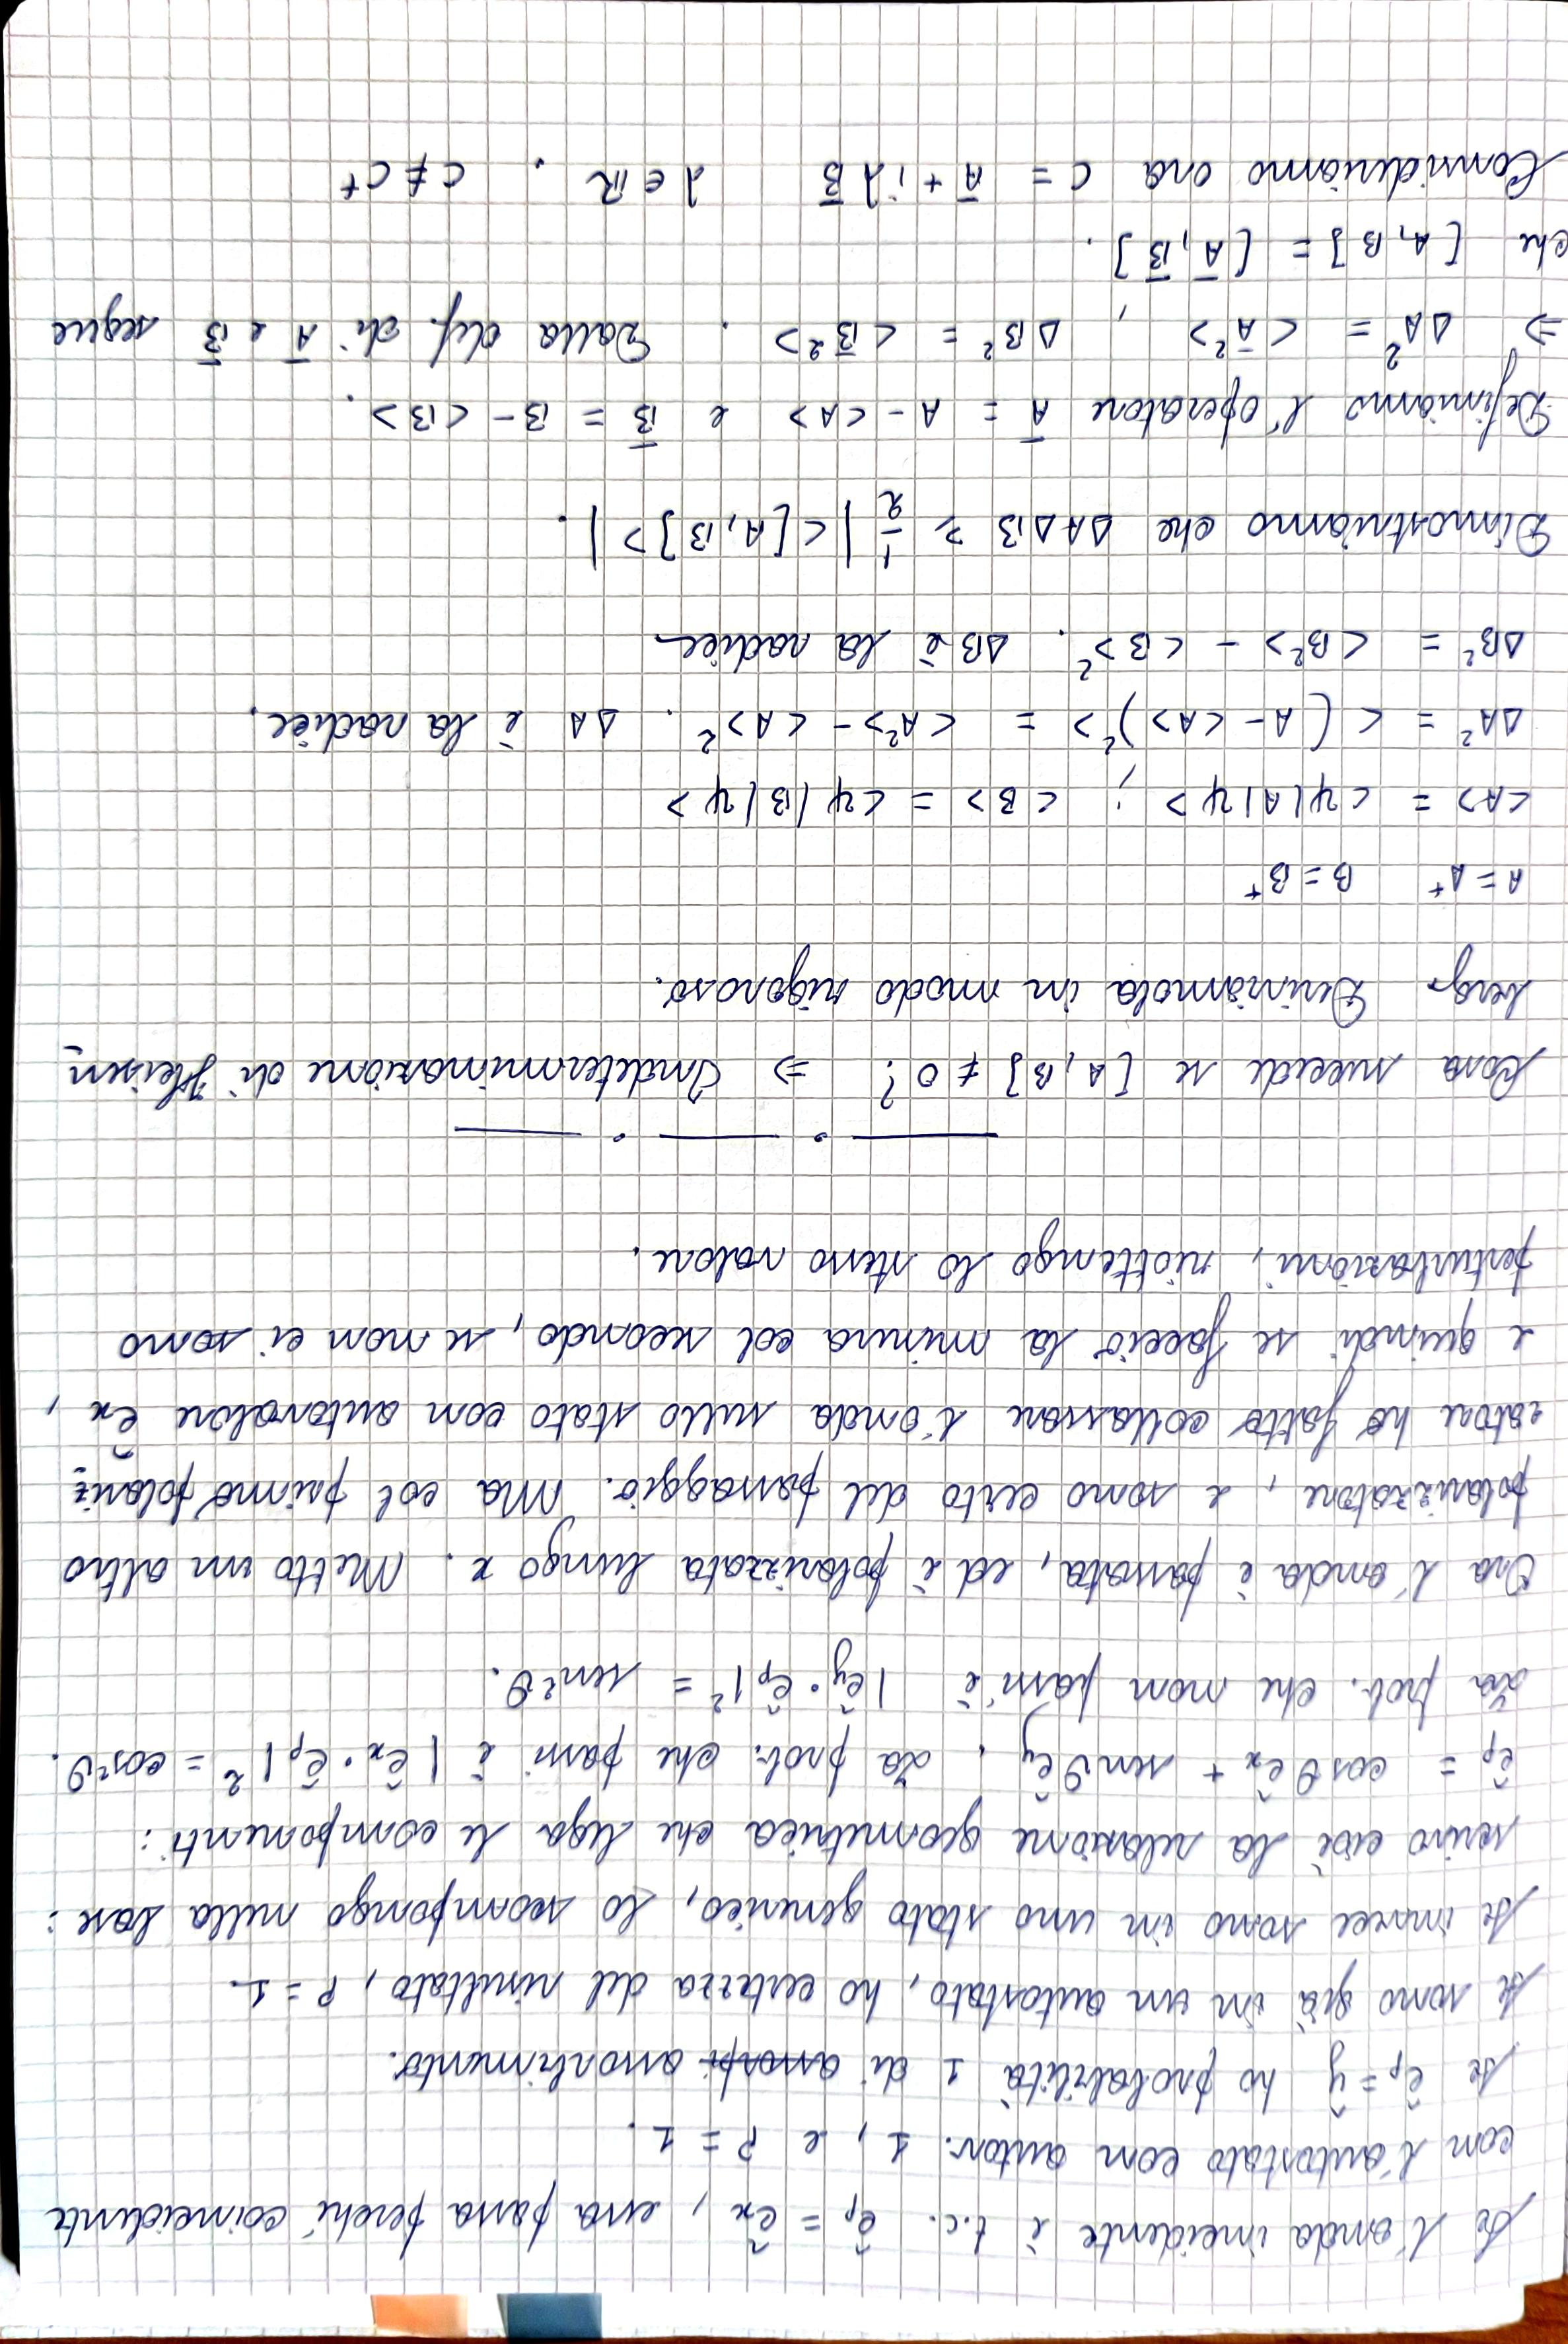 Se l'onda incidente è t.c. ê_p = ê_x, essa passa perché coincidente
con l'autostato con autov. 1, e P = 1.
Se ê_p = ŷ ho probabilità 1 di assorbimento.
Se sono già in un autostato, ho certezza del risultato, P = 1.
Se invece sono in uno stato generico, lo scompongo nella base:
scrivo cioè la relazione geometrica che lega le componenti:
ê_p = cosθ ê_x + senθ ê_y. La prob. che passi è |ê_x · ê_p|² = cos²θ.
La prob. che non passi è |ê_y · ê_p|² = sen²θ.
Ora l'onda è passata, ed è polarizzata lungo x. Metto un altro
polarizzatore, e sono certo del passaggio. Ma col primo polariz-
zatore ho fatto collassare l'onda sullo stato con autovalore ê_x,
e quindi se faccio la misura col secondo, se non ci sono
perturbazioni, riottengo lo stesso valore.
Cosa succede se [A, B] ≠ 0? ⇒ Indeterminazione di Heisen-
berg. Deriviamola in modo rigoroso.
A = A† B = B†
<A> = <ψ|A|ψ> ; <B> = <ψ|B|ψ>
ΔA² = <(A - <A>)²> = <A²> - <A>². ΔA è la radice.
ΔB² = <B²> - <B>². ΔB è la radice
Dimostriamo che ΔAΔB ≥ 1/2 |<[A, B]>|.
Definiamo l'operatore Ā = A - <A> e B̄ = B - <B>.
⇒ ΔA² = <Ā²> , ΔB² = <B̄²>. Dalla def. di Ā e B̄ segue
che [A, B] = [Ā, B̄].
Consideriamo ora C = Ā + iλB̄ λ ∈ ℝ. C ≠ C†